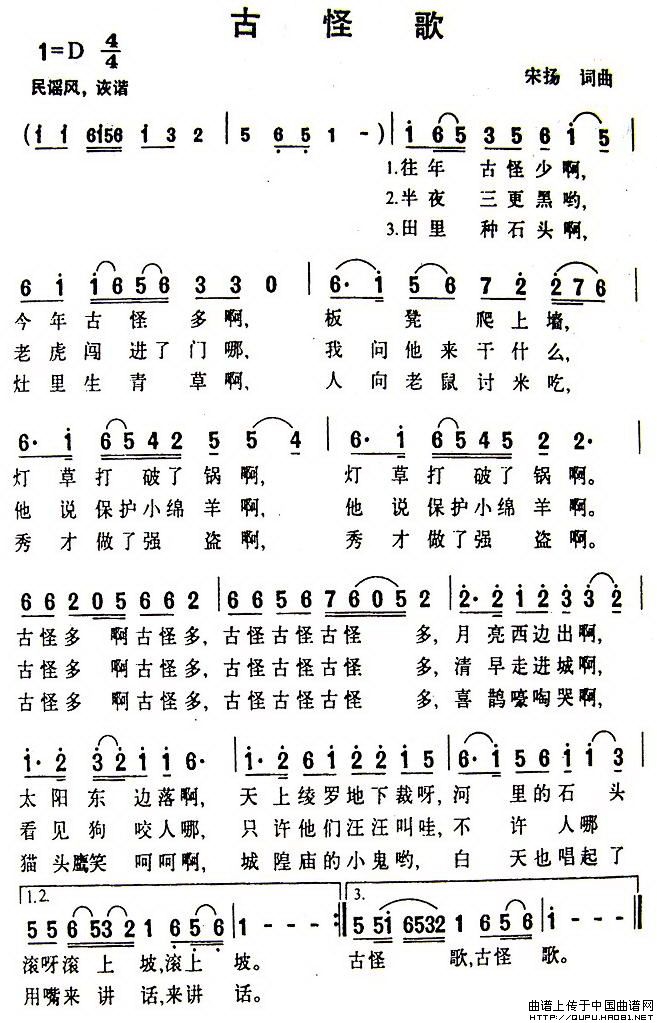 古怪歌
1=D 4/4
宋扬 词曲
民谣风，诙谐
(i i 6i56 i 3 2 | 5 6 5 1 -) | i 6 5 3 5 6 i 5
1.往年 古怪少啊,
2.半夜 三更黑哟,
3.田里 种石头啊,
6 i i 6 5 6 3 3 0 | 6· i 5 6 7 2 2 7 6
今年古怪多啊, 板凳爬上墙,
老虎闯进了门哪, 我问他来干什么,
灶里生青草啊, 人向老鼠讨米吃,
6· i 6 5 4 2 5 5 4 | 6· i 6 5 4 5 2 2·
灯草打破了锅啊, 灯草打破了锅啊。
他说保护小绵羊啊, 他说保护小绵羊啊。
秀才做了强盗啊, 秀才做了强盗啊。
6 6 2 0 5 6 6 2 | 6 6 5 6 7 6 0 5 2 | 2· 2 i 2 3 3 2
古怪多 啊古怪多, 古怪古怪古怪 多, 月亮西边出啊,
古怪多 啊古怪多, 古怪古怪古怪 多, 清早走进城啊,
古怪多 啊古怪多, 古怪古怪古怪 多, 喜鹊嚎啕哭啊,
i· 2 3 2 i i 6· | i· 2 6 i 2 2 i 5 | 6 i 5 6 i i 3
太阳东边落啊, 天上绫罗地下裁呀, 河里的石头
看见狗咬人哪, 只许他们汪汪叫哇, 不许人哪
猫头鹰笑呵呵啊, 城隍庙的小鬼哟, 白天也唱起了
1.2. 3.
5 5 6 5 3 2 1 6 5 6 | 1 - - - :| 5 5 i 6 5 3 2 1 6 5 6 | 1 - - - ‖
滚呀滚上坡,滚上坡。 古怪歌,古怪歌。
用嘴来讲话,来讲话。
曲谱上传于中国曲谱网
HTTP://QUPU.HAO81.NET